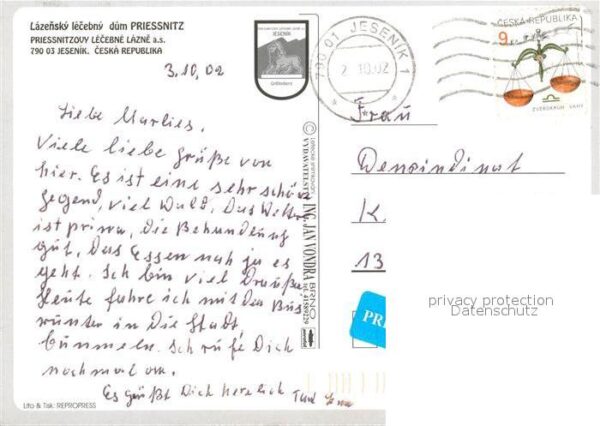 Lázeňský léčebný dům PRIESSNITZ
PRIESSNITZOVY LÉČEBNÉ LÁZNĚ a.s.
790 03 JESENÍK. ČESKÁ REPUBLIKA
JESENÍK
790 01 JESENÍK 1
2.10.02
ČESKÁ REPUBLIKA
9
ZVĚROKRUH VÁHY
3.10.02
Liebe Marlies.
Viele liebe Grüße von
hier. Es ist eine sehr schöne
gegend, viel Wald. Das Wetter
ist prima, die Behandlung
gut, Das Essen nah ja es
geht. Ich bin viel Drauße
Heute fahre ich mit den Bus
runter in die Stadt,
bummeln. Ich rufe Dich
nochmal an.
Es grüßt Dich herzlich
Frau
K
13
VYDAVATELSTVÍ ING. JAN VONDRA BRNO
PRI
privacy protection
Datenschutz
Lito & Tisk: REPROPRESS